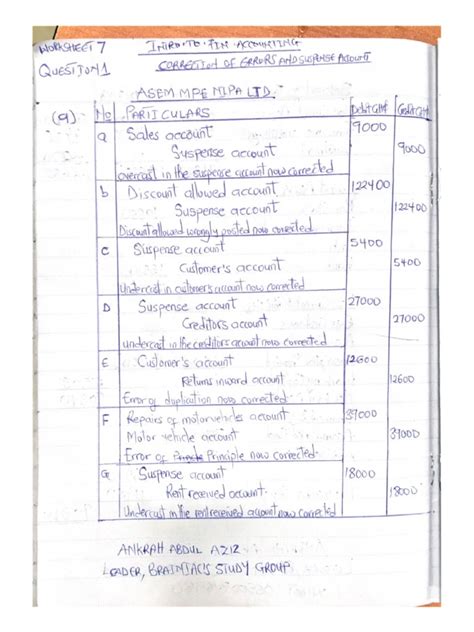 WORKSHEET 7 INTRO TO FIN ACCOUNTING
QUESTION 1 CORRECTION OF ERRORS AND SUSPENSE ACCOUNT
ASEM MPE NIPA LTD
(a) No PARTICULARS Debit GH¢ Credit GH¢
a Sales account 9000
Suspense account 9000
overcast in the suspense account now corrected
b Discount allowed account 122400
Suspense account 122400
Discount allowed wrongly posted now corrected
C Suspense account 5400
Customer's account 5400
Undercast in customer's account now corrected
D Suspense account 27000
Creditors account 27000
undercast in the creditors account now corrected
E Customer's account 12600
Returns inward account 12600
Error of duplication now corrected
F Repairs of motor vehicles account 37000
Motor vehicle account 37000
Error of Principle now corrected
G Suspense account 18000
Rent received account 18000
Undercast in the rent received account now corrected
ANKRAH ABDUL AZIZ
LEADER, BRAINIACS STUDY GROUP